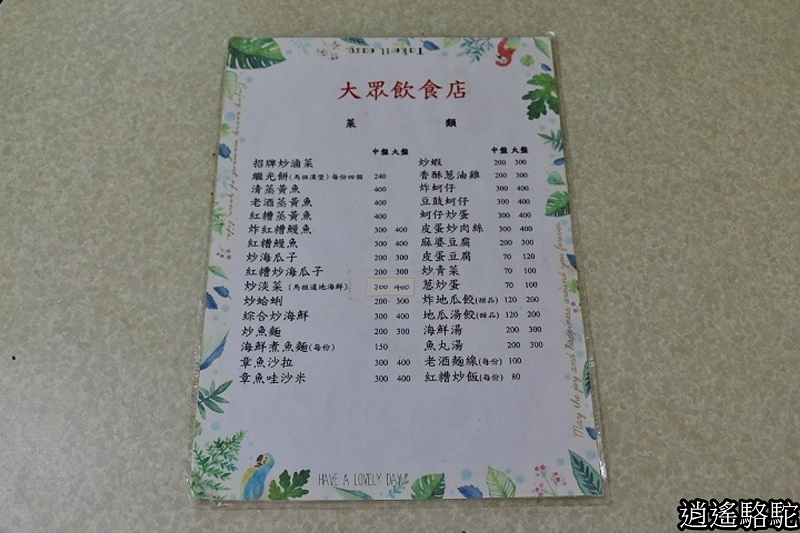 Take it easy.
大眾飲食店
菜 類
中盤 大盤
招牌炒滷菜
繼光餅(馬祖漢堡)每份四個 240
清蒸黃魚 400
老酒蒸黃魚 400
紅糟蒸黃魚 400
炸紅糟鰻魚 300 400
紅糟鰻魚 300 400
炒海瓜子 200 300
紅糟炒海瓜子 200 300
炒淡菜(馬祖道地海鮮) 300 400
炒蛤蜊 200 300
綜合炒海鮮 300 400
炒魚麵 200 300
海鮮煮魚麵(每份) 150
章魚沙拉 300 400
章魚哇沙米 300 400
中盤 大盤
炒蝦 200 300
香酥蔥油雞 200 300
炸蚵仔 300 400
豆鼓蚵仔 300 400
蚵仔炒蛋 300 400
皮蛋炒肉絲 300 400
麻婆豆腐 200 300
皮蛋豆腐 70 120
炒青菜 70 100
蔥炒蛋 70 100
炸地瓜餃(甜品) 120 200
地瓜湯餃(甜品) 120 200
海鮮湯 200 300
魚丸湯 200 300
老酒麵線(每份) 100
紅糟炒飯(每份) 80
May the joy and happiness around you forever
HAVE A LOVELY DAY
逍遙駱駝